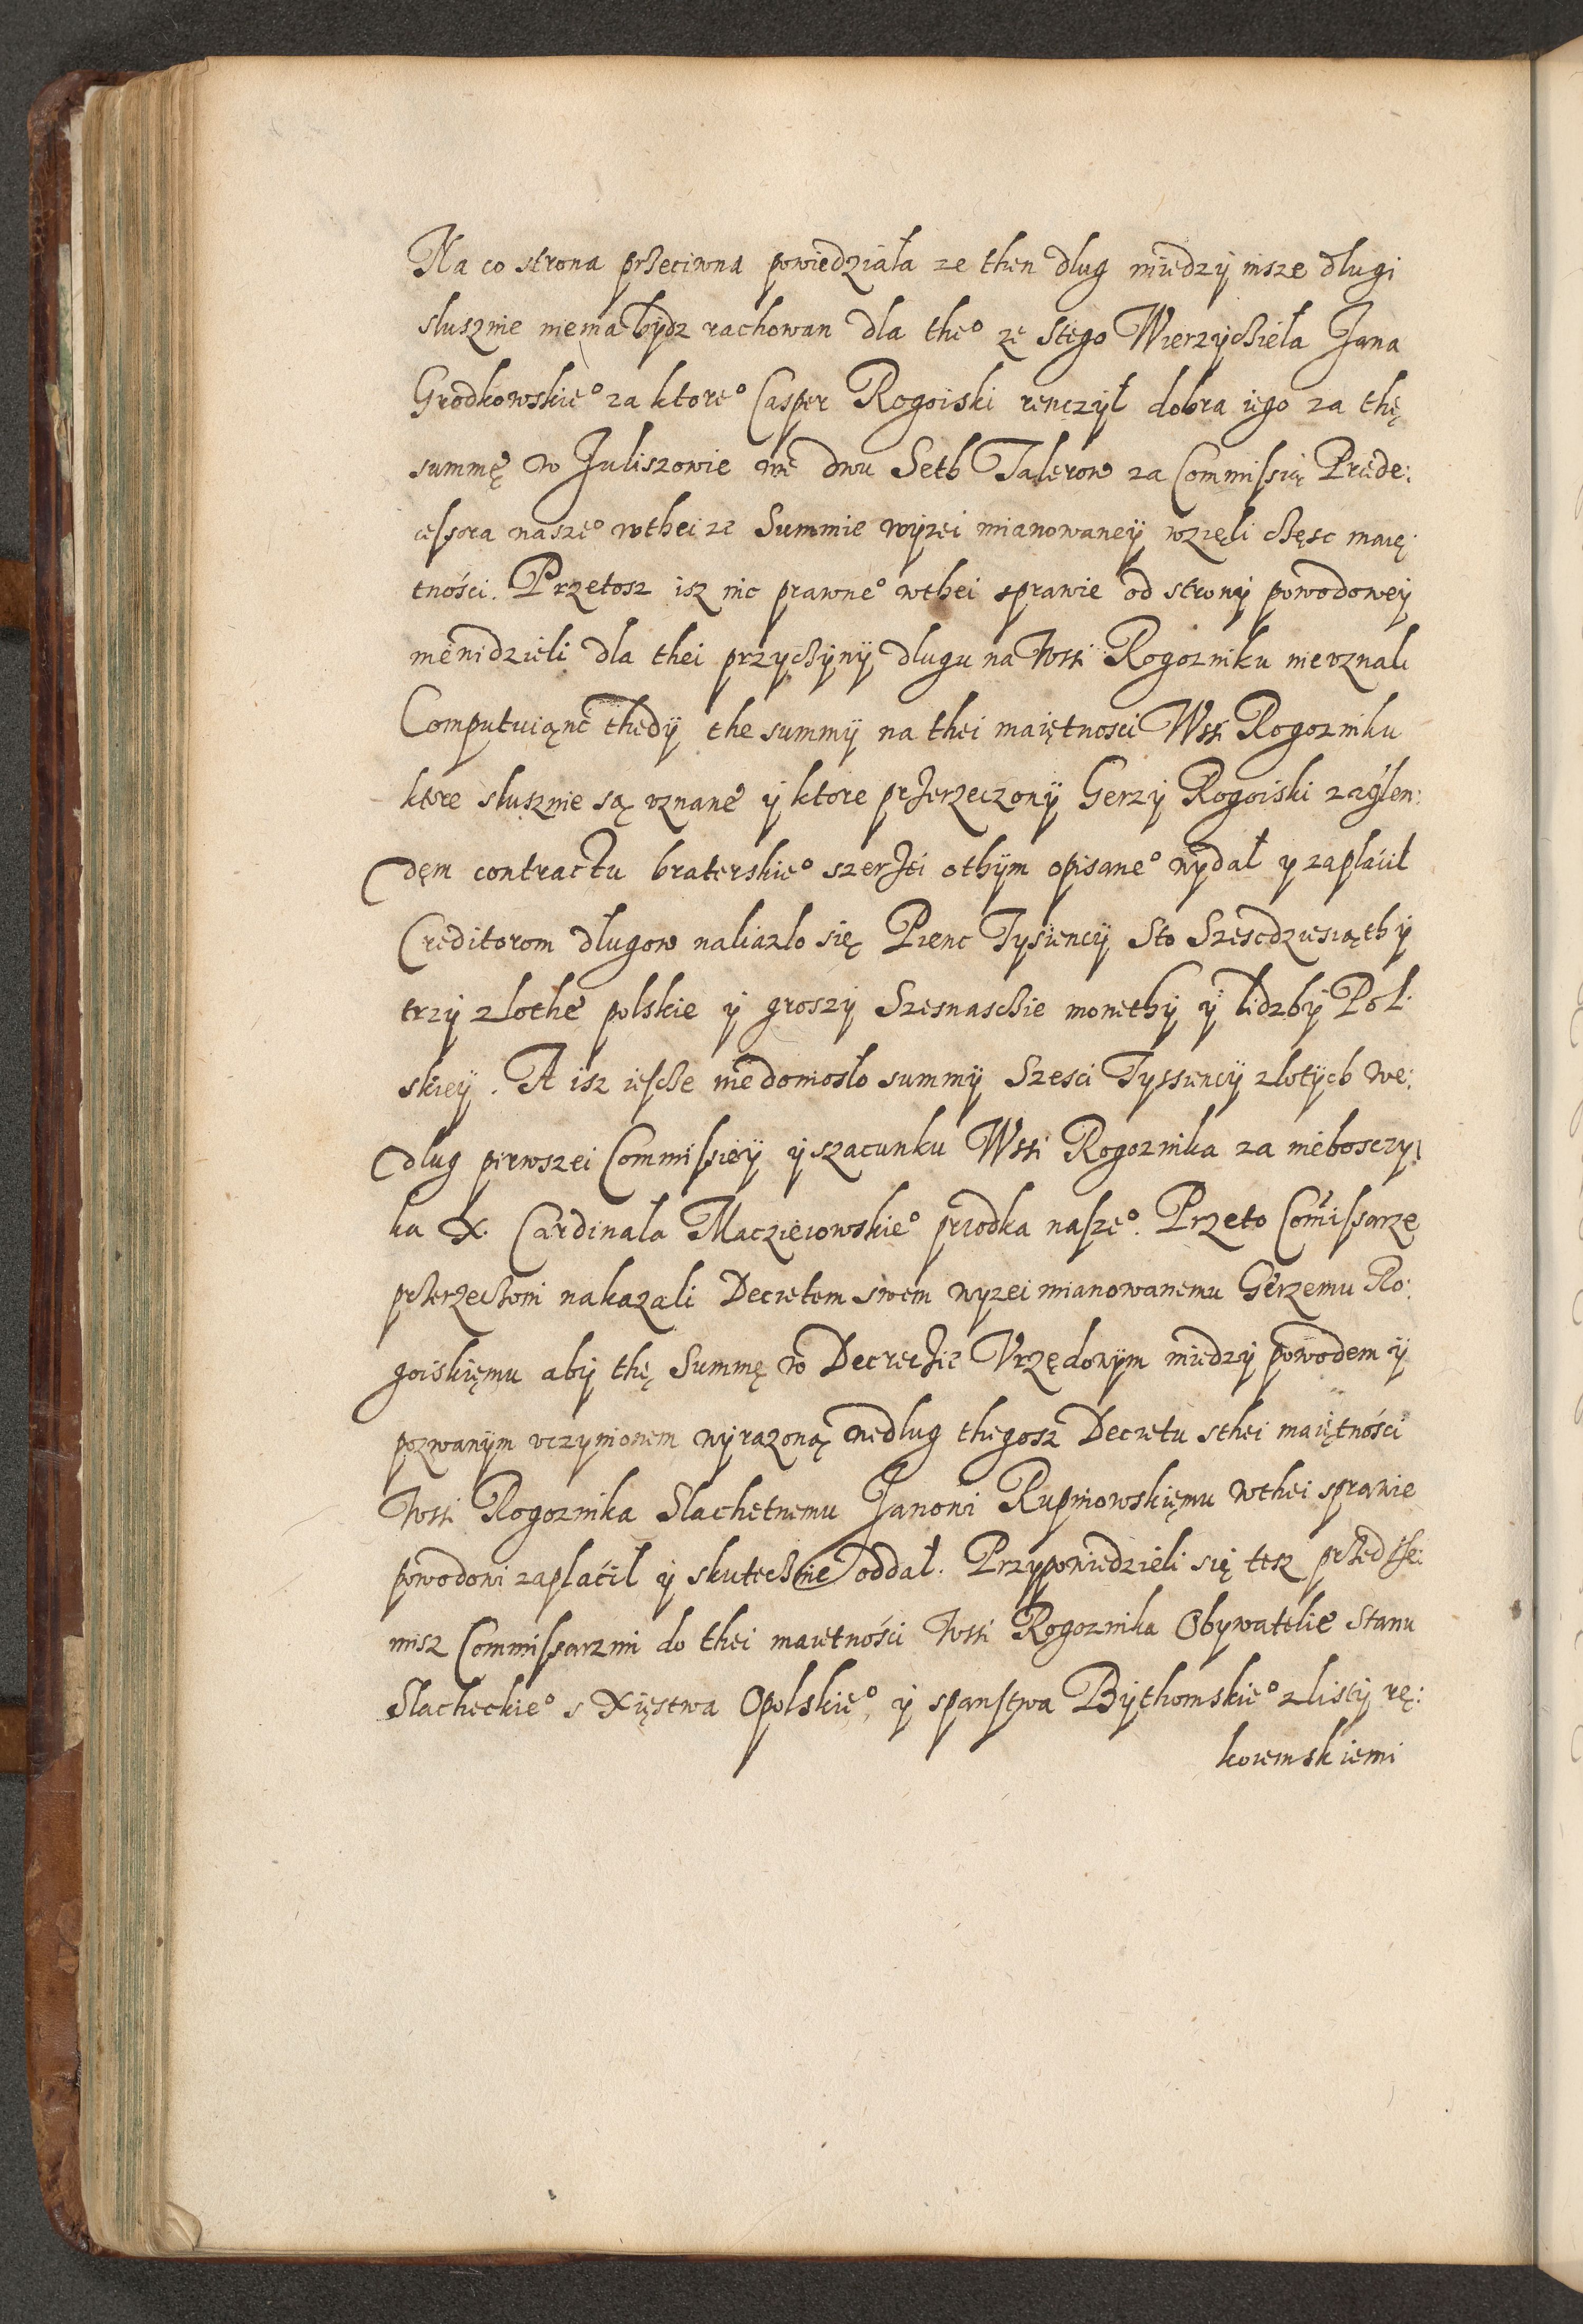 Na co strona przeciwna powiedziała ze then dlug miedzÿ insze dlugi
slusznie niema bÿdz rachowan dla the° ze stego Wierzÿciela Jana
Grodkowskie° za ktore° Casper Rogoiski renczÿł dobra iego za thę
summę w Juliszowie we dwu Seth Talerow za Commissią Prede:
cessora nasze° wthei ze Summie wÿzei mianowaneÿ wzięli częsc maię:
tności. Przetosz isz nic prawne° wthei sprawie od stronÿ powodoweÿ
niewidzieli dla thei przÿczÿnÿ dlugu na Wsi Rogozniku nieuznali
Computuiąnc thedÿ the summÿ na thei maiętnosci Wsi Rogozniku
ktore slusznie są uznane ÿ ktore przerzeczonÿ Gerzÿ Rogoiski zaglen:
dęm contractu braterskie° szerzei othÿm opisane° wÿdał ÿ zaplacił
Creditorom dlugow naliazlo się Pienc Tysiencÿ Sto Szescdziesiąth ÿ
trzÿ zlothe polskie ÿ groszÿ Szesnascie monethÿ ÿ lidzbÿ Pol:
skieÿ. A isz iescze niedoniosło summÿ Szesci Tyssiencÿ zlotÿch we:
dlug pirwszei Commissieÿ ÿ szacunku Wsi Rogoznika za niebosczy:
ka X. Cardinala Macziewskie° przodka nasze°. Przeto Comissarze
przerzeczoni nakazali Decretem swem wyzei mianowanemu Gerzemu Ro:
goiskięmu abÿ thę Summę w Decrecie Vrzędowÿm miedzÿ powodem ÿ
pozwanÿm uczynionem wÿrazoną wedlug thegosz Decretu sthei maiętności
Wsi Rogoznika Slachetnemu Janowi Rupniowskięmu wthei sprawie
powodowi zaplacił ÿ skutecznie oddał. Przypowiedzieli się tesz przed the:
misz Commissarzmi do thei maietności Wsi Rogoznika Obywatelie Stanu
Slacheckie° s Xięstwa Opolskie°, ÿ spanstwa Bÿthomskie° z listÿ rę:
koiemskiemi